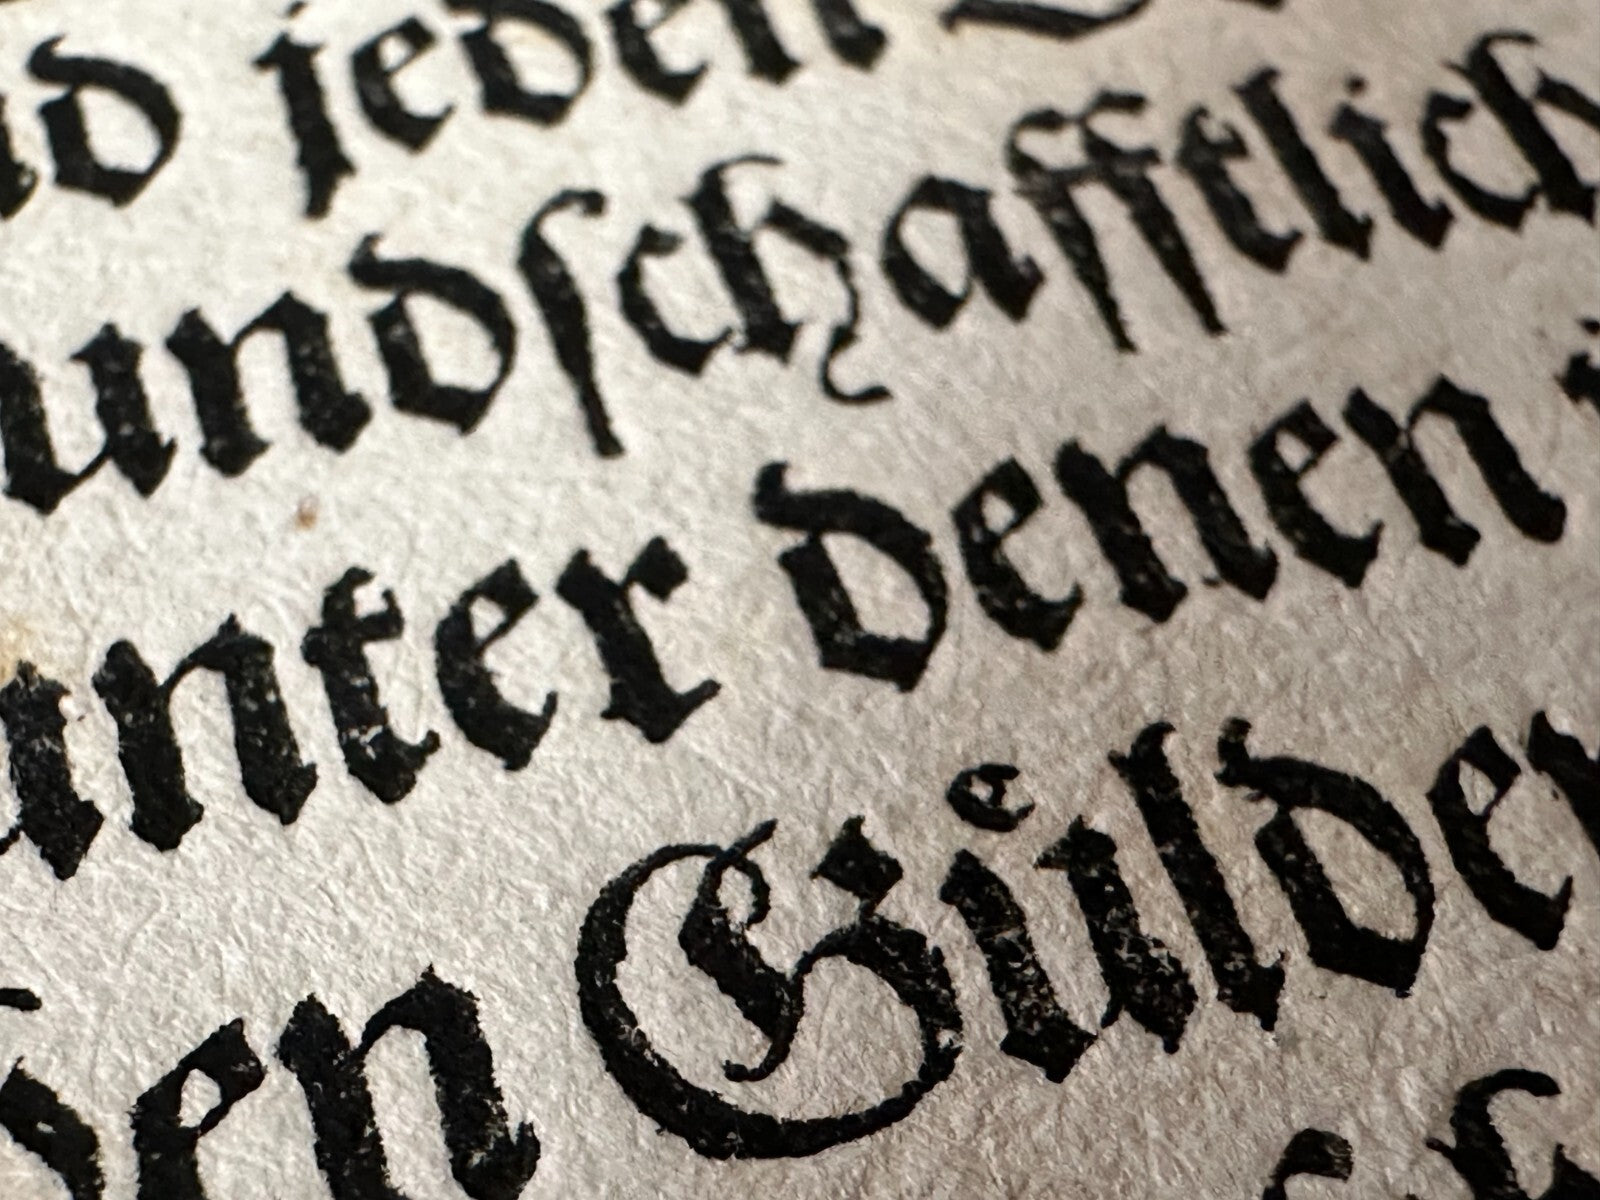 d jeden
undſchafftlich
unter denen
den Guͤlden